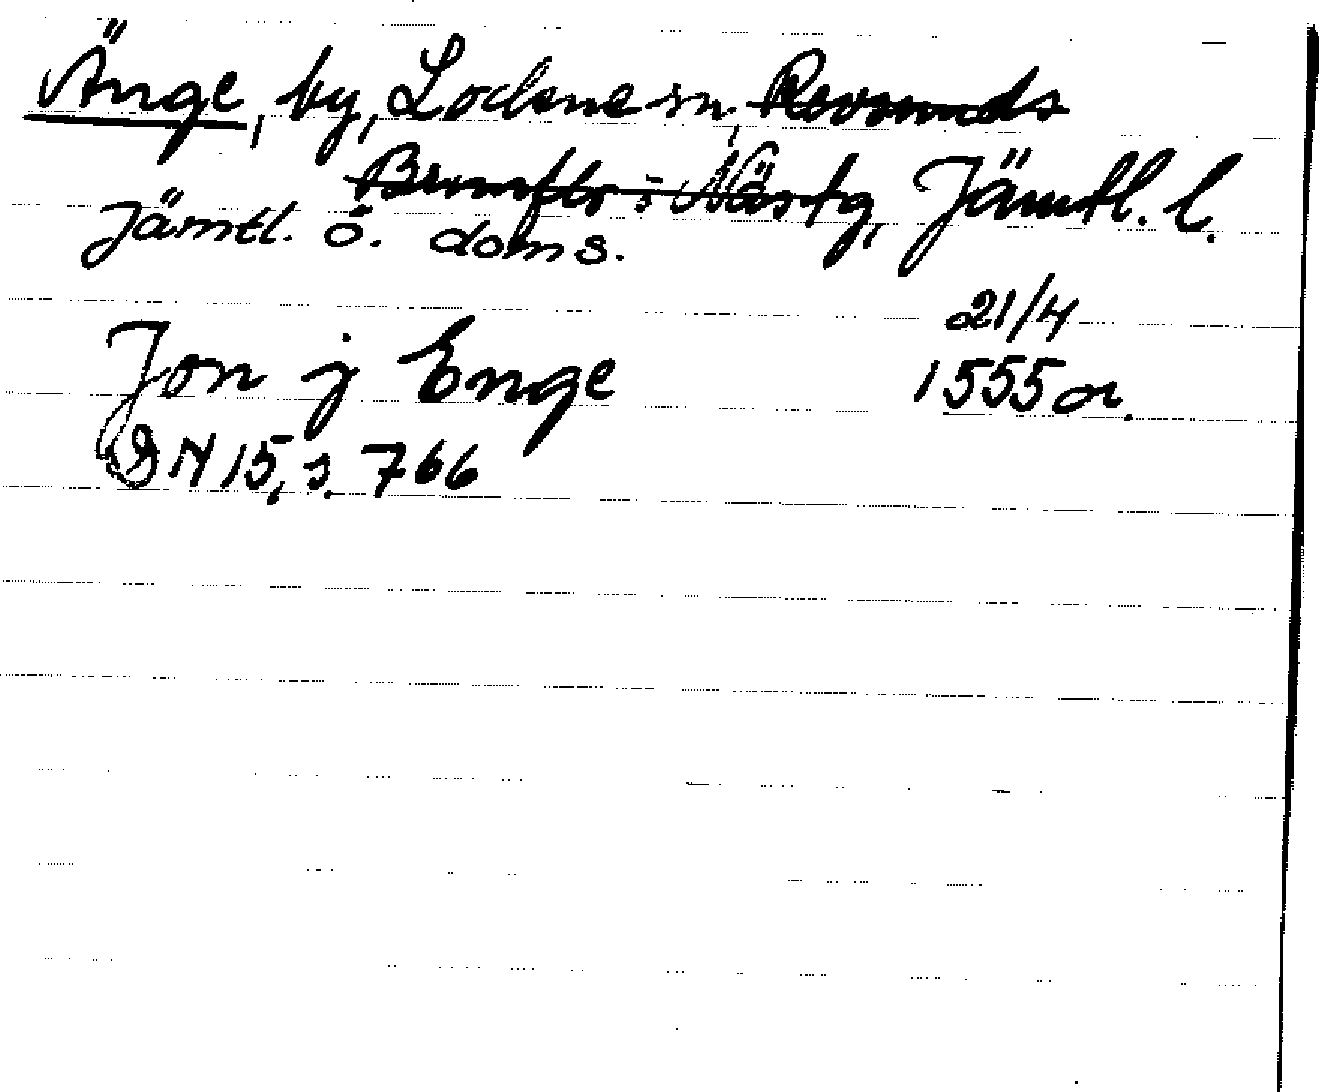 Änge, by, Lockne sn, Revsunds
Brunflo i Näs tg, Jämtl. l.
Jämtl. ö. doms.
21/4
Jon j Enge 1555 or.
DN 15, s. 766